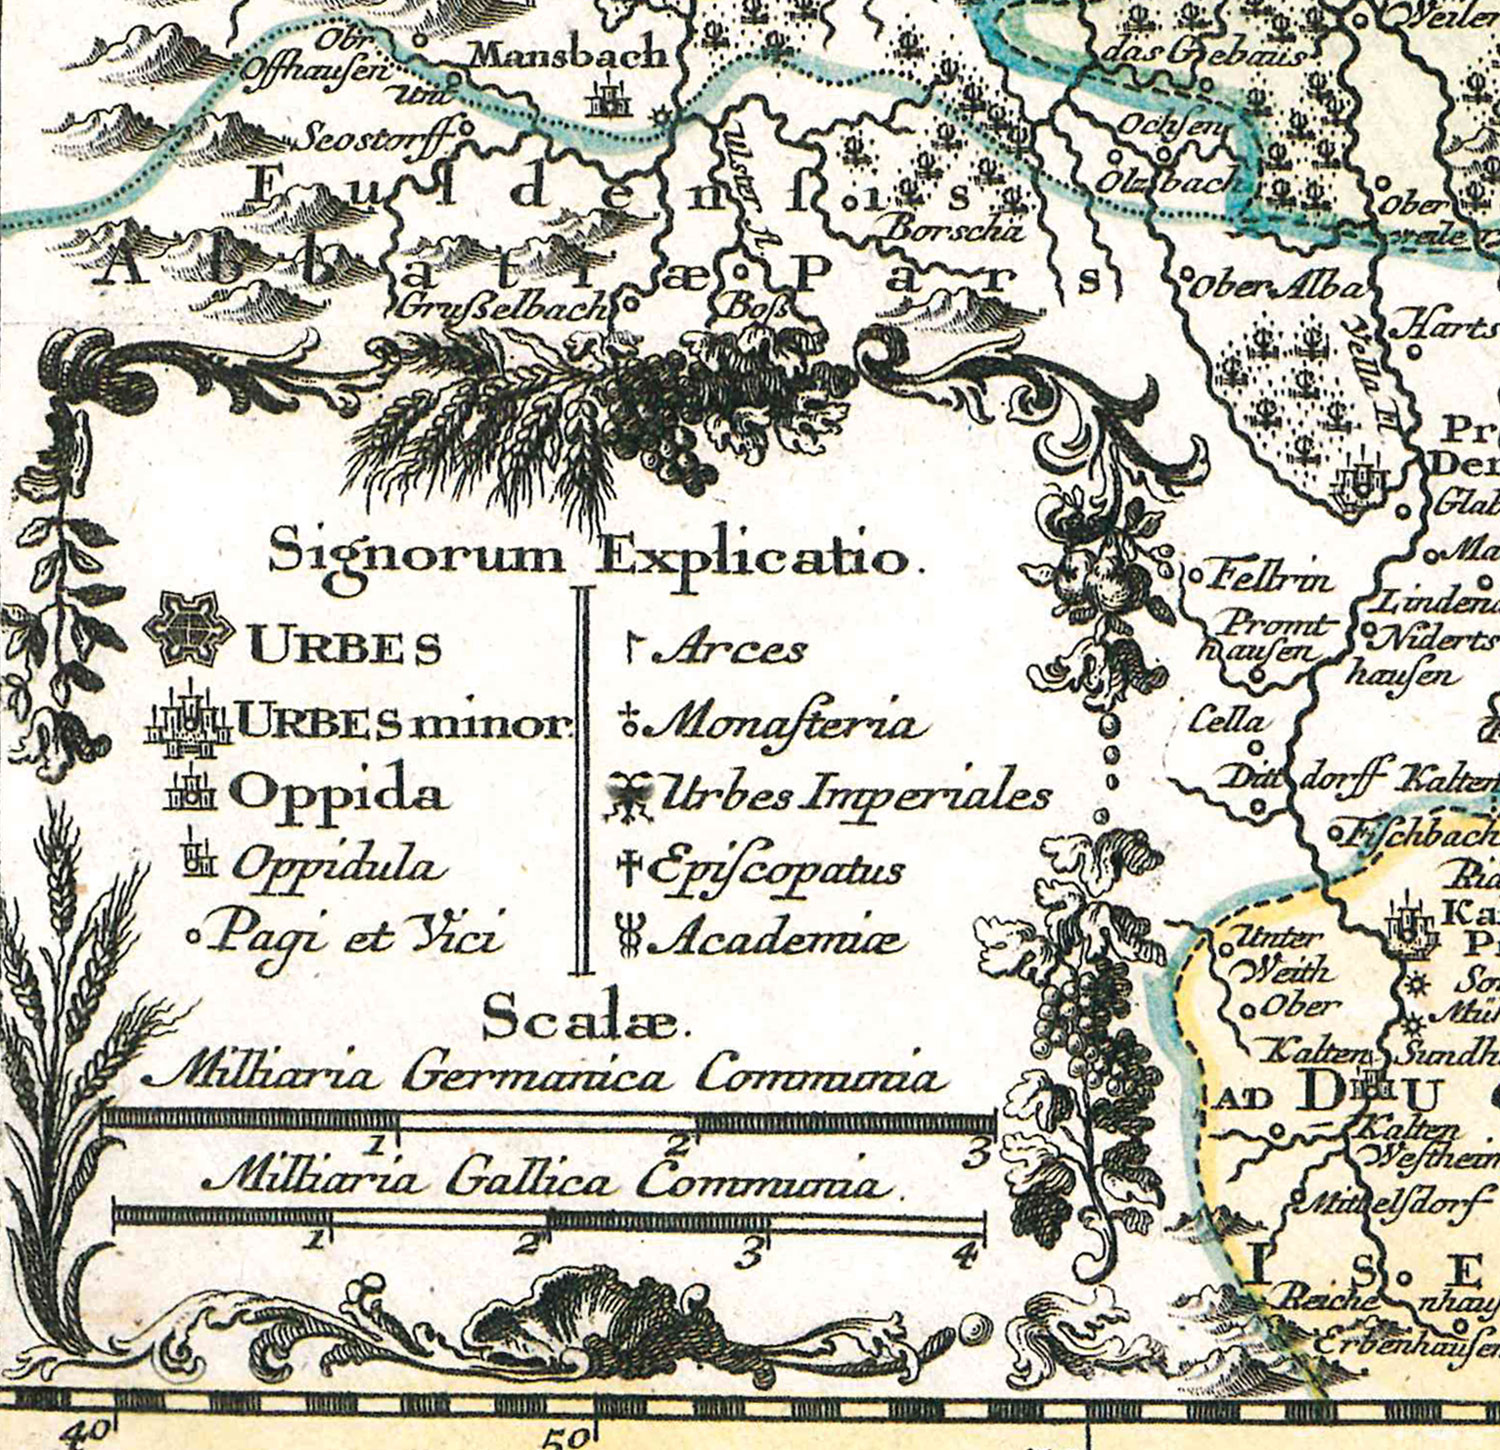 Weiler
Obr
Offhausen
Unt
Mansbach
das Gebaus
Seostorff
Ochsen
Olzbach
Ulster fl
Fuldensis
Borscha
Ober
weile
Abbatiæ Pars
Grußelbach
Boß
Ober Alba
Harts
Vella Fl
Pr
Der
Glab
Ma
Signorum Explicatio.
URBES
URBES minor.
Oppida
Oppidula
Pagi et Vici
Arces
Monasteria
Urbes Imperiales
Episcopatus
Academiæ
Scalæ.
Milliaria Germanica Communia
1 2 3
Milliaria Gallica Communia.
1 2 3 4
Fellrin
Promt
hausen
Linden
Niderts
hausen
Cella
Ditt dorff
Kalten
Fischbach
Ka
Unter
Weith
Ober
Kalten Sundh
Mül
AD DU
Kalten
Westheim
Mittelsdorf
ISE
Reiche nhaus
Erbenhausen
40
50